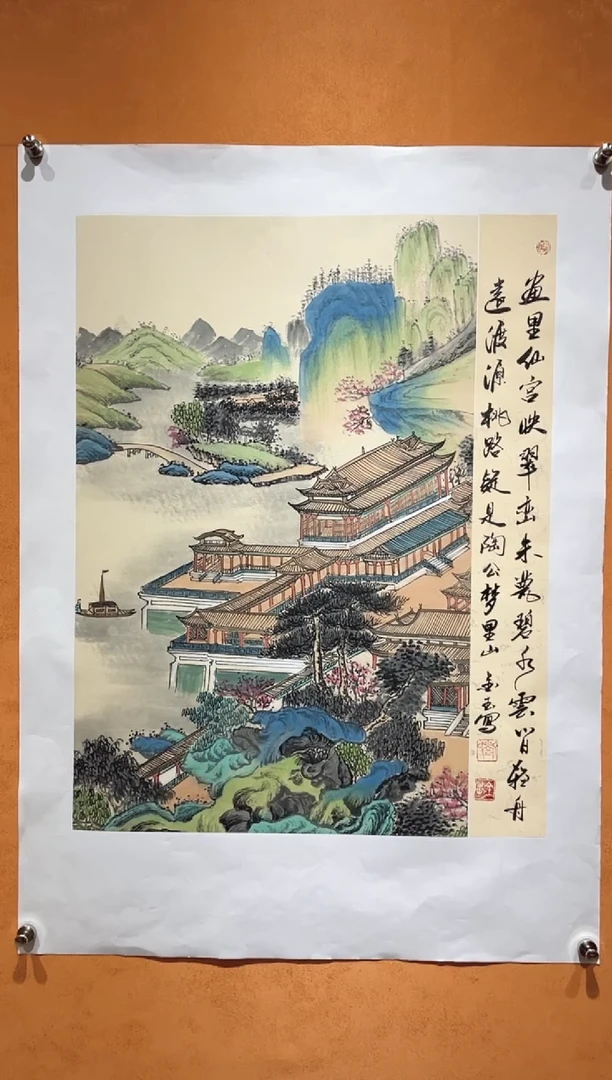 画里仙宫映翠峦朱甍碧水云间轻舟
远渡源桃路疑是陶公梦里山 金玉写